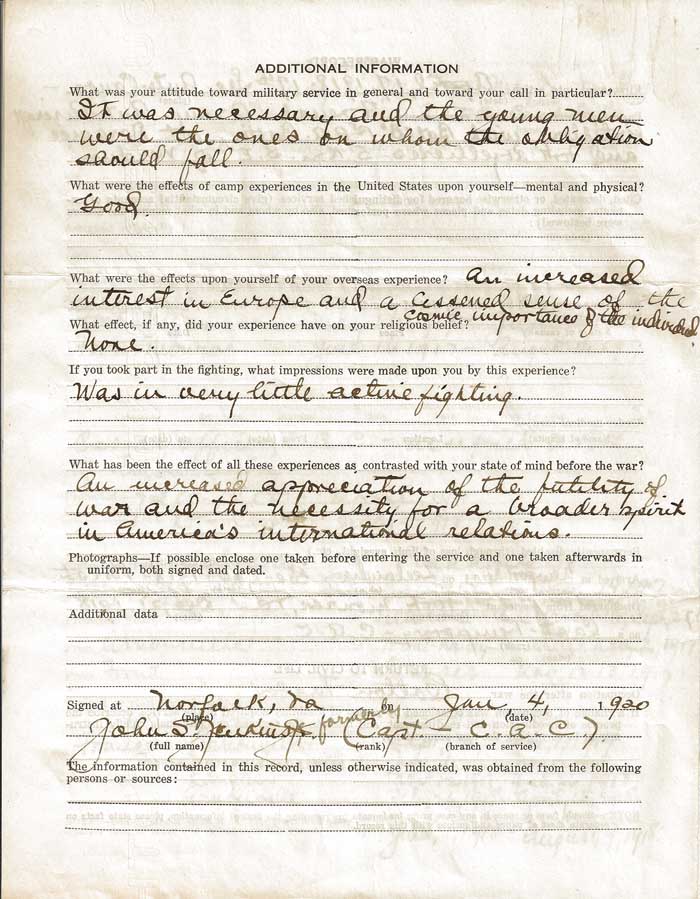 ADDITIONAL INFORMATION
What was your attitude toward military service in general and toward your call in particular?
It was necessary and the young men
were the ones on whom the obligation
should fall.
What were the effects of camp experiences in the United States upon yourself—mental and physical?
Good.
What were the effects upon yourself of your overseas experience? An increased
interest in Europe and a lessened sense of the
cosmic importance of the individual
What effect, if any, did your experience have on your religious belief?
None.
If you took part in the fighting, what impressions were made upon you by this experience?
Was in very little active fighting.
What has been the effect of all these experiences as contrasted with your state of mind before the war?
An increased appreciation of the futility of
war and the necessity for a broader spirit
in America's international relations.
Photographs—If possible enclose one taken before entering the service and one taken afterwards in
uniform, both signed and dated.
Additional data
Signed at Norfolk, Va on Jan, 4, 1920
(place) (date)
John S. Jenkins Jr. formerly (Capt. - C.A.C.)
(full name) (rank) (branch of service)
The information contained in this record, unless otherwise indicated, was obtained from the following
persons or sources: